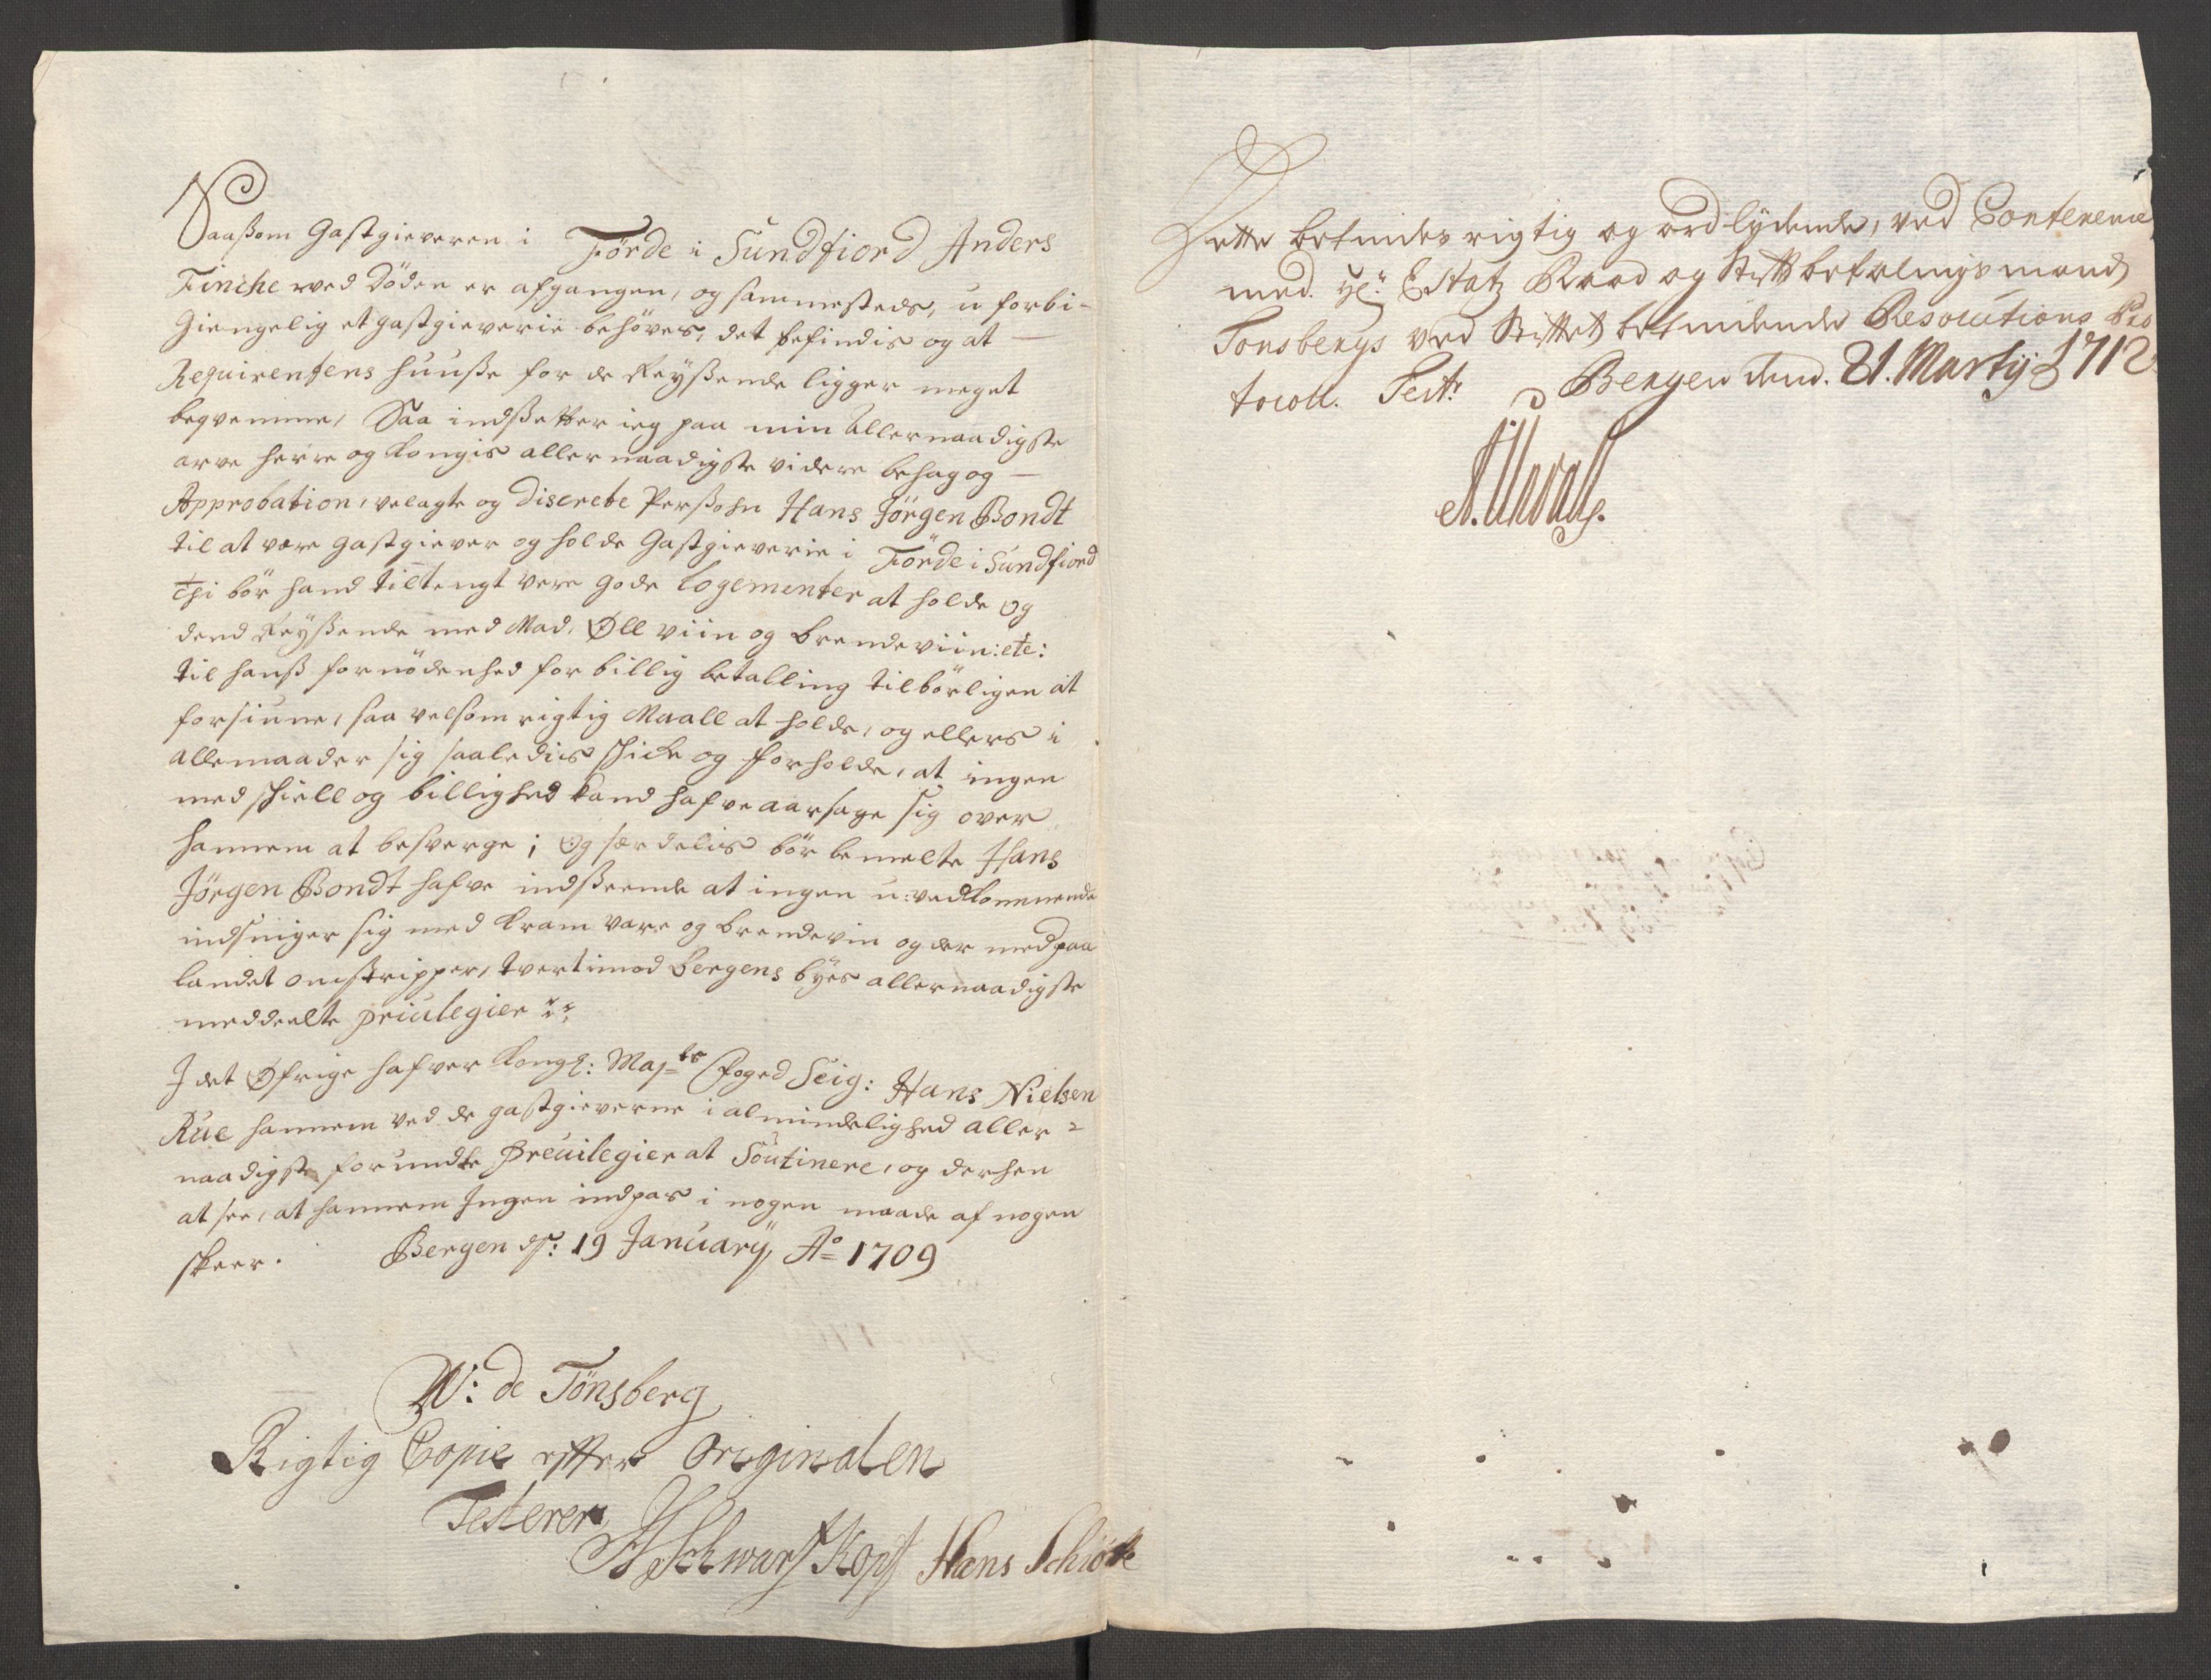 Saasom Gastgieveren i Förde i Sundfiord Anders
Finche ved Döden er afgangen, og sammesteds, u forbi-
giengelig et gastgieverie behöves, det befindis og at
Requirentens huuße for de Reyßende ligger meget
beqvemme, Saa indßetter ieg paa min Allernaadigste
arve herre og Kongis allernaadigste videre behag og
Approbation, velagte og Discrete Perßohn Hans Jörgen Bondt
til at være gastgiever og holde Gastgieverie i Förde i Sundfiord
Thi bör hand tiltengt vere gode logementer at holde og
dend Reyßende med Mad, Øll viin og brendeviin: etc:
til hanß fornödenhed for billig betalling tilbörligen at
forsiune, saa velsom rigtig Maall at holde, og ellers i
allemaader sig saaledis skicke og forholde, at ingen
med skiell og billighed kand hafve aarsage sig over
hannem at besverge; Og særdelis bör bemelte Hans
Jörgen Bondt hafve indßeende at ingen u:vedkommende
indsniger sig med kram vare og brendevin og der med paa
landet omstripper, tvertimod bergens byes allernaadigste
meddeelte priulegier
I det Øfrige hafver Kongl: Maj:ts Foged Seig: Hans Nielsen
Rue hannem ved de gastgieverne i almindelighed aller=
naadigste forundte Preuilegier at Soutinere, og derhen
at see, at hannem Ingen indpas i nogen maade af nogen
skeer. Bergen ds: 19 January Ao 1709
W: de Tönsberg
Rigtig Copie efter Originalen
Testerer
A Schwartzkopf Hans Schiötte
Dette befindes rigtig og ordlydende, ved Conference
med Hr: Estatz Raad og Stiftbefalingsmand
Tonsbergs ved Stiftet befindende Resolutions Pro
tocoll. Test: Bergen dend. 21. Martij 1712